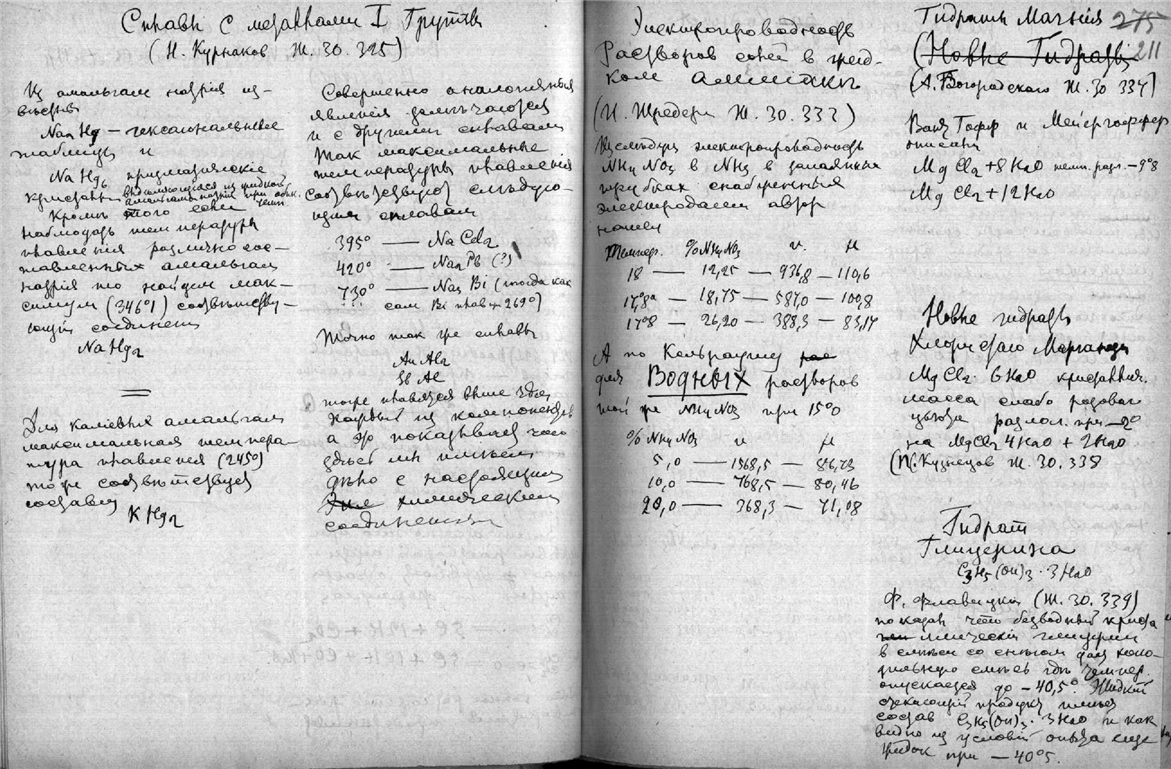 Сплавы с металлами I Группы
(Н. Курнаков. Ж. 30. 325)
Из амальгам натрия из-
вестны
Na12 Hg — гексагональные
таблицы и
Na Hg6 призматические
кристаллы выделяющиеся из жидкой
амальгамы натрия при обык.
темп.
Кроме этого если
наблюдать температуры
плавления различно сос-
тавленных амальгам
натрия то найдем мак-
симум (346°) соответству-
ющий соединению
Na Hg2
Для калиевых амальгам
максимальная темпера-
тура плавления (245°)
тоже соответствует
составу
K Hg2
Совершенно аналогичные
явления замечаются
и с другими сплавами
Так максимальные
температуры плавления
соответствуют следую-
щим сплавам
395° — Na Cd2
420° — Na2 Pb (?)
730° — Na3 Bi (тогда как
сам Bi плав. 269°)
Точно так же сплавы
Au Al2
Sb Al
тоже плавятся выше чем
каждый из компонентов
а это показывает что
здесь мы имеем
дело с настоящим
химическим
соединением
Электропроводность
Растворов солей в жид-
ком аммиаке
(И. Шредер Ж. 30. 333)
Исследуя электропроводность
NH4 NO3 в NH3 в запаянных
трубках снабженных
электродами автор
нашел
Темпер. % NH4NO3 κ. μ
18 — 12,25 — 936,8 — 110,6
17,8° — 18,75 — 587,0 — 100,8
17°8 — 26,20 — 388,3 — 83,17
А по Кольраушу
для Водных растворов
той же NH4 NO3 при 15°
% NH4 NO3 κ μ
5,0 — 1568,5 —
10,0 — 768,5 — 80,46
20,0 — 368,3 — 71,08
275
211
Гидраты Магния
(Новые Гидраты
(А. Богородский Ж. 30 337)
Вант Гофф и Мейергоффер
описали
Mg Cl2 + 8 H2O темп. разл. — 9°8
Mg Cl2 + 12 H2O
Новые гидраты
Хлористаго Марганца
MgCl2. 6 H2O кристаллич.
масса слабо розоваго
цвета разлаг. при —2°
на MgCl2 4H2O + 2H2O
(П. Кузнецов Ж. 30. 338
Гидрат
Глицерина
C3H5(OH)3 · 3 H2O
Ф. Флавицкий (Ж. 30. 339)
показал что безводный криста
лический глицерин
в смеси со снегом дает холо-
дильную смесь где темпер
опускается до — 40,5°. Жидкий
стекающий продукт имеет
состав C3H5(OH)3 · 3H2O и как
видно из условий опыта еще
жидок при — 40°5.